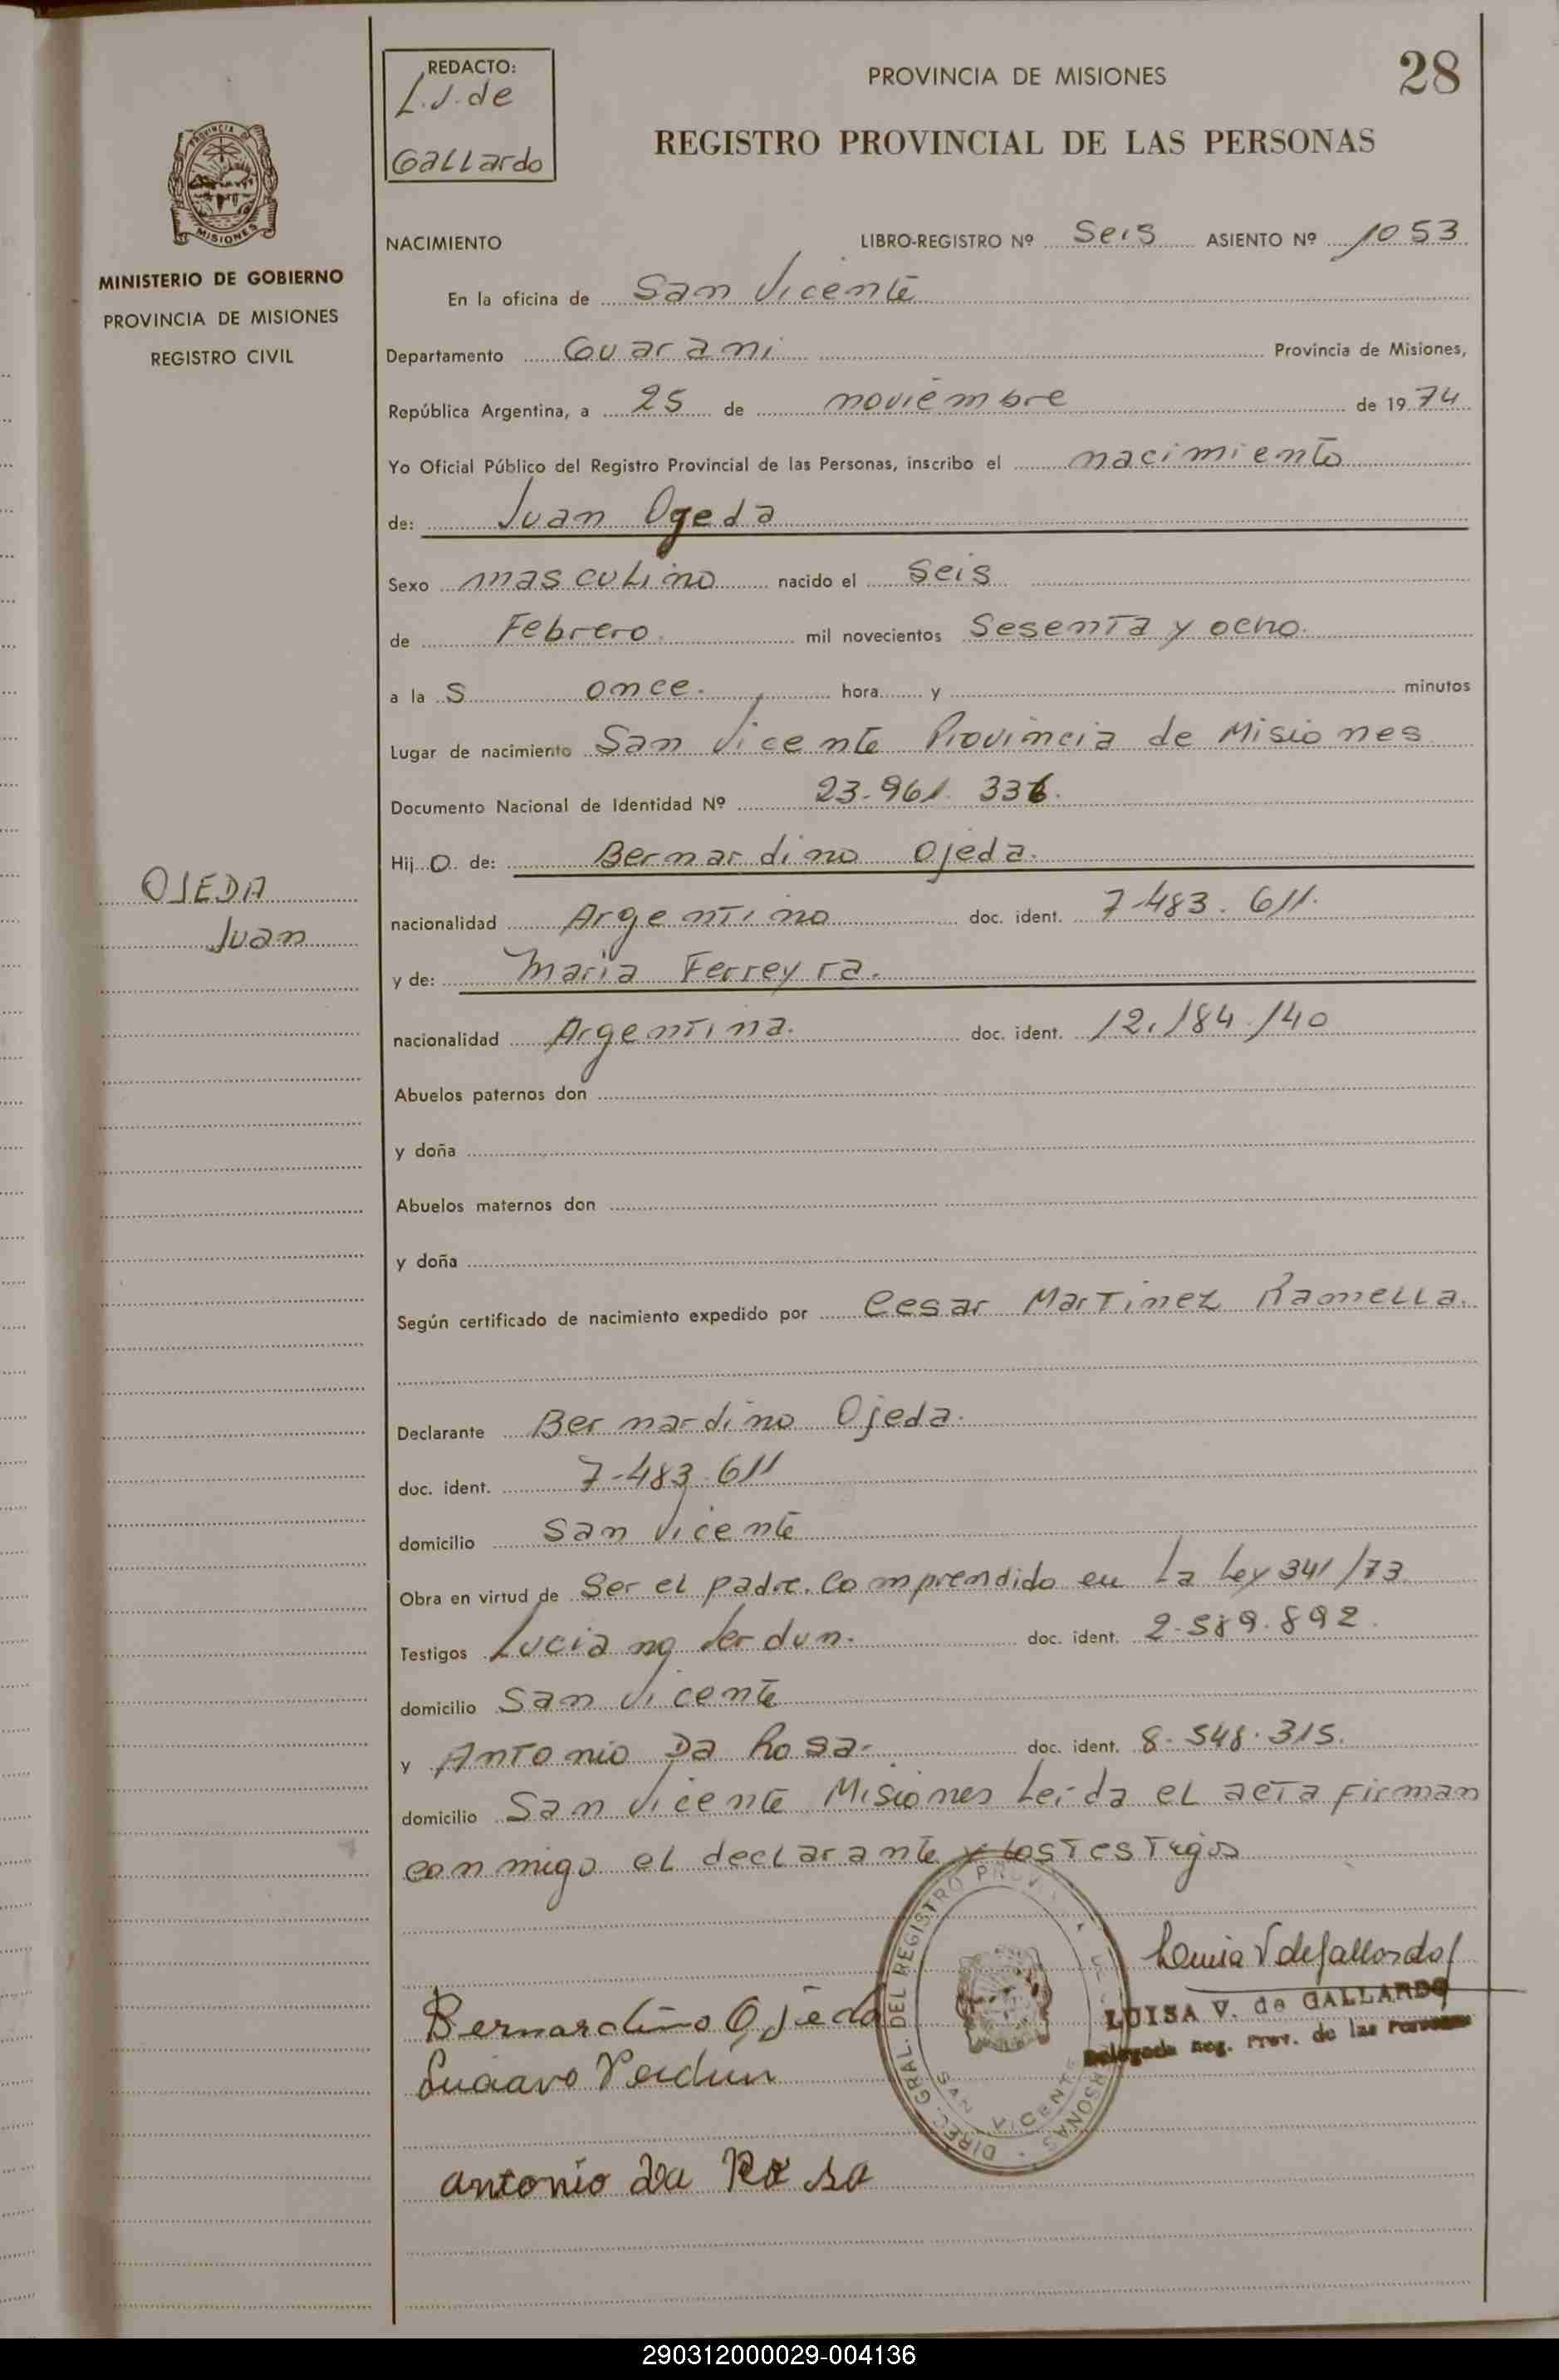 REDACTO:
L.J. de
Gallardo
PROVINCIA DE MISIONES
28
REGISTRO PROVINCIAL DE LAS PERSONAS
PROVINCIA DE
MISIONES
MINISTERIO DE GOBIERNO
PROVINCIA DE MISIONES
REGISTRO CIVIL
NACIMIENTO LIBRO-REGISTRO Nº Seis ASIENTO Nº 1053
En la oficina de San Vicente
Departamento Guarani Provincia de Misiones,
República Argentina, a 25 de noviembre de 1974
Yo Oficial Público del Registro Provincial de las Personas, inscribo el nacimiento
de: Juan Ogeda
Sexo masculino nacido el Seis
de Febrero. mil novecientos Sesenta y ocho.
a la s once. hora y minutos
Lugar de nacimiento San Vicente Provincia de Misiones
Documento Nacional de Identidad Nº 23.961.336.
Hij o de: Bernardino Ojeda.
OJEDA
Juan
nacionalidad Argentino doc. ident. 7.483.611.
y de: Maria Ferreyra.
nacionalidad Argentina. doc. ident. 12.184.140
Abuelos paternos don
y doña
Abuelos maternos don
y doña
Según certificado de nacimiento expedido por Cesar Martinez Ramella.
Declarante Bernardino Ojeda.
doc. ident. 7-483.611
domicilio San Vicente
Obra en virtud de Ser el padre. Comprendido en La Ley 341/73
Testigos Luciano Verdun. doc. ident. 2.589.892.
domicilio San Vicente
y Antonio Da Rosa- doc. ident. 8.548.315.
domicilio San Vicente Misiones Leida el acta firman
conmigo el declarante y los Testigos
DIREC. GRAL. DEL REGISTRO PROV. PERSONAS
SAN VICENTE
Luisa V de Gallardo
LUISA V. de GALLARDO
Delegada Reg. Prov. de las Personas
Bernardino Ojeda
Luciano Verdun
antonio da Rosa
290312000029-004136